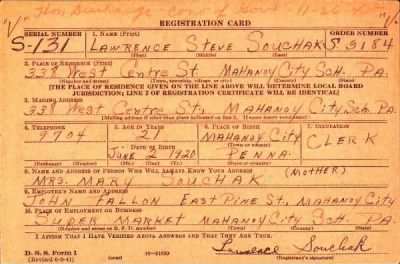 REGISTRATION CARD
SERIAL NUMBER 1. NAME (Print) ORDER NUMBER
S-131 LAWRENCE STEVE SOUCHAK S 3184
(First) (Middle) (Last)
2. PLACE OF RESIDENCE (Print)
338 West Centre St. MAHANOY CITY Sch. PA.
(Number and street) (Town, township, village, or city) (County) (State)
[THE PLACE OF RESIDENCE GIVEN ON THE LINE ABOVE WILL DETERMINE LOCAL BOARD
JURISDICTION; LINE 2 OF REGISTRATION CERTIFICATE WILL BE IDENTICAL]
3. MAILING ADDRESS
338 West Centre St., MAHANOY CITY Sch. PA
[Mailing address if other than place indicated on line 2. If same, insert word same]
4. TELEPHONE 5. AGE IN YEARS 6. PLACE OF BIRTH 7. OCCUPATION
9704 21 MAHANOY CITY CLERK
DATE OF BIRTH (Town or county)
JUNE 2 1920 PENNA.
(Exchange) (Number) (Mo.) (Day) (Yr.) (State or country)
8. NAME AND ADDRESS OF PERSON WHO WILL ALWAYS KNOW YOUR ADDRESS (MOTHER)
MRS. MARY SOUCHAK
9. EMPLOYER'S NAME AND ADDRESS
JOHN FALLON EAST PINE St., MAHANOY CITY
10. PLACE OF EMPLOYMENT OR BUSINESS
SUPER MARKET MAHANOY CITY Sch. PA.
(Number and street or R. F. D. number) (Town) (County) (State)
I AFFIRM THAT I HAVE VERIFIED ABOVE ANSWERS AND THAT THEY ARE TRUE.
D. S. S. Form 1 Lawrence Souchak
(Revised 6-9-41) 16-21630 (Registrant's signature)